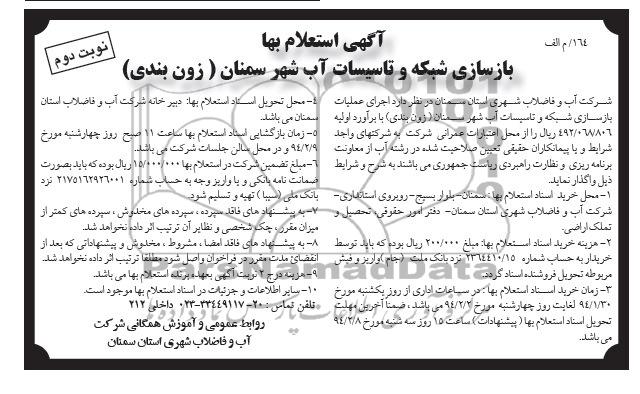 ۱۶۴/ م الف
آگهی استعلام بها
نوبت دوم
بازسازی شبکه و تاسیسات آب شهر سمنان ( زون بندی)
شرکت آب و فاضلاب شهری استان سمنان در نظر دارد اجرای عملیات
بازسازی شبکه و تاسیسات آب شهر سمنان ( زون بندی) با برآورد اولیه
۴۹۲/۰۶۸/۸۰۶ ریال را از محل اعتبارات عمرانی شرکت به شرکتهای واجد
شرایط و یا پیمانکاران حقیقی تعیین صلاحیت شده در رشته آب از معاونت
برنامه ریزی و نظارت راهبردی ریاست جمهوری می باشند به شرح و شرایط
ذیل واگذار نماید.
۱- محل خرید اسناد استعلام بها : سمنان- بلوار بسیج- روبروی استانداری-
شرکت آب و فاضلاب شهری استان سمنان- دفتر امور حقوقی، تحصیل و
تملک اراضی.
۲- هزینه خرید اسناد استعلام بها: مبلغ ۲۰۰/۰۰۰ ریال بوده که باید توسط
خریدار به حساب شماره ۲۳۶۴۴۱۰/۱۵ نزد بانک ملت (جام) واریز و فیش
مربوطه تحویل فروشنده اسناد گردد.
۳- زمان خرید اسناد استعلام بها : در ساعات اداری از روز یکشنبه مورخ
۹۴/۱/۳۰ لغایت روز چهارشنبه مورخ ۹۴/۲/۲ می باشد ، ضمناً آخرین مهلت
تحویل اسناد استعلام بها ( پیشنهادات) ساعت ۱۵ روز سه شنبه مورخ ۹۴/۲/۸
می باشد.
۴- محل تحویل اسناد استعلام بها: دبیر خانه شرکت آب و فاضلاب استان
سمنان می باشد.
۵- زمان بازگشایی اسناد استعلام بها ساعت ۱۱ صبح روز چهارشنبه مورخ
۹۴/۲/۹ و در محل سالن جلسات شرکت می باشد.
۶- مبلغ تضمین شرکت در استعلام بها ۱۵/۰۰۰/۰۰۰ ریال بوده که باید بصورت
ضمانت نامه بانکی و یا واریز وجه به حساب شماره ۲۱۷۵۱۶۲۹۲۶۰۰۱ نزد
بانک ملی (سیبا ) تهیه و تسلیم شود.
۷- به پیشنهاد های فاقد سپرده ، سپرده های مخدوش ، سپرده های کمتر از
میزان مقرر ، چک شخصی و نظایر آن ترتیب اثر داده نخواهد شد.
۸- به پیشنهاد های فاقد امضا ، مشروط ، مخدوش و پیشنهاداتی که بعد از
انقضای مدت مقرر در فراخوان واصل شود مطلقاً ترتیب اثر داده نخواهد شد.
۹- هزینه درج ۲ نوبت آگهی بعهده برنده استعلام بها می باشد.
۱۰- سایر اطلاعات و جزئیات در اسناد استعلام بها موجود است.
تلفن تماس : ۲۰-۳۳۴۴۹۱۱۷-۰۲۳ داخلی ۲۱۲
روابط عمومی و آموزش همگانی شرکت
آب و فاضلاب شهری استان سمنان